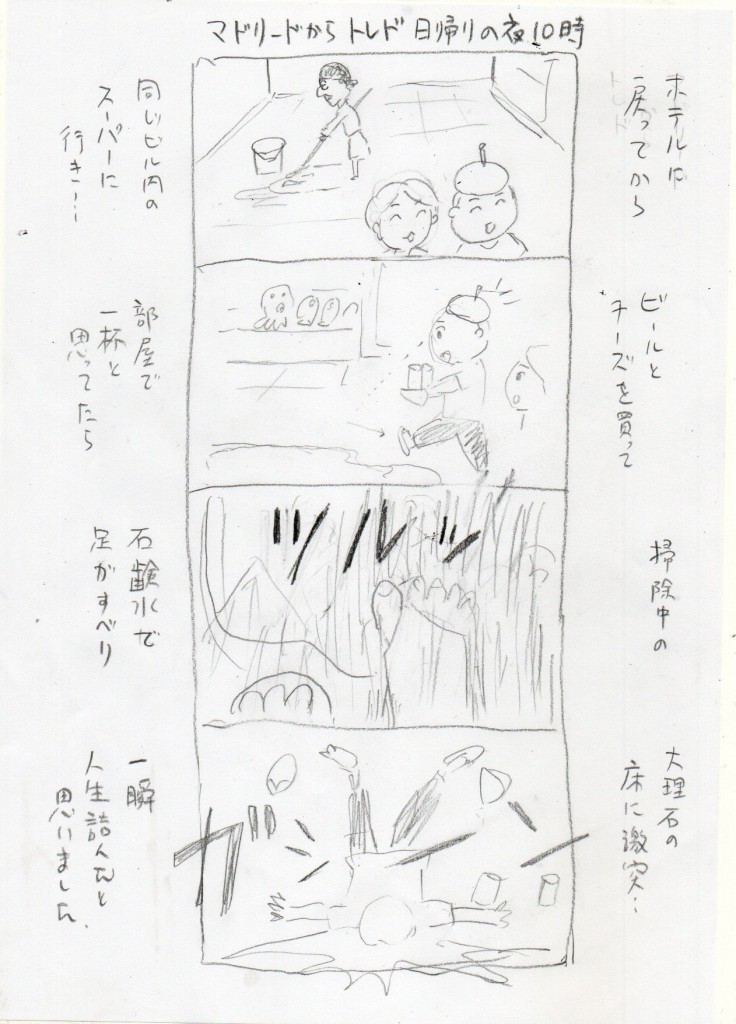 マドリードから トレド 日帰りの夜10時
ホテルに
戻ってから
同じビル内の
スーパーに
行き…
ビールと
チーズを買って
部屋で
一杯と
思ってたら
掃除中の
石鹸水で
足がすべり
ツルッ
大理石の
床に激突…
一瞬
人生詰んだと
思いました
ガ